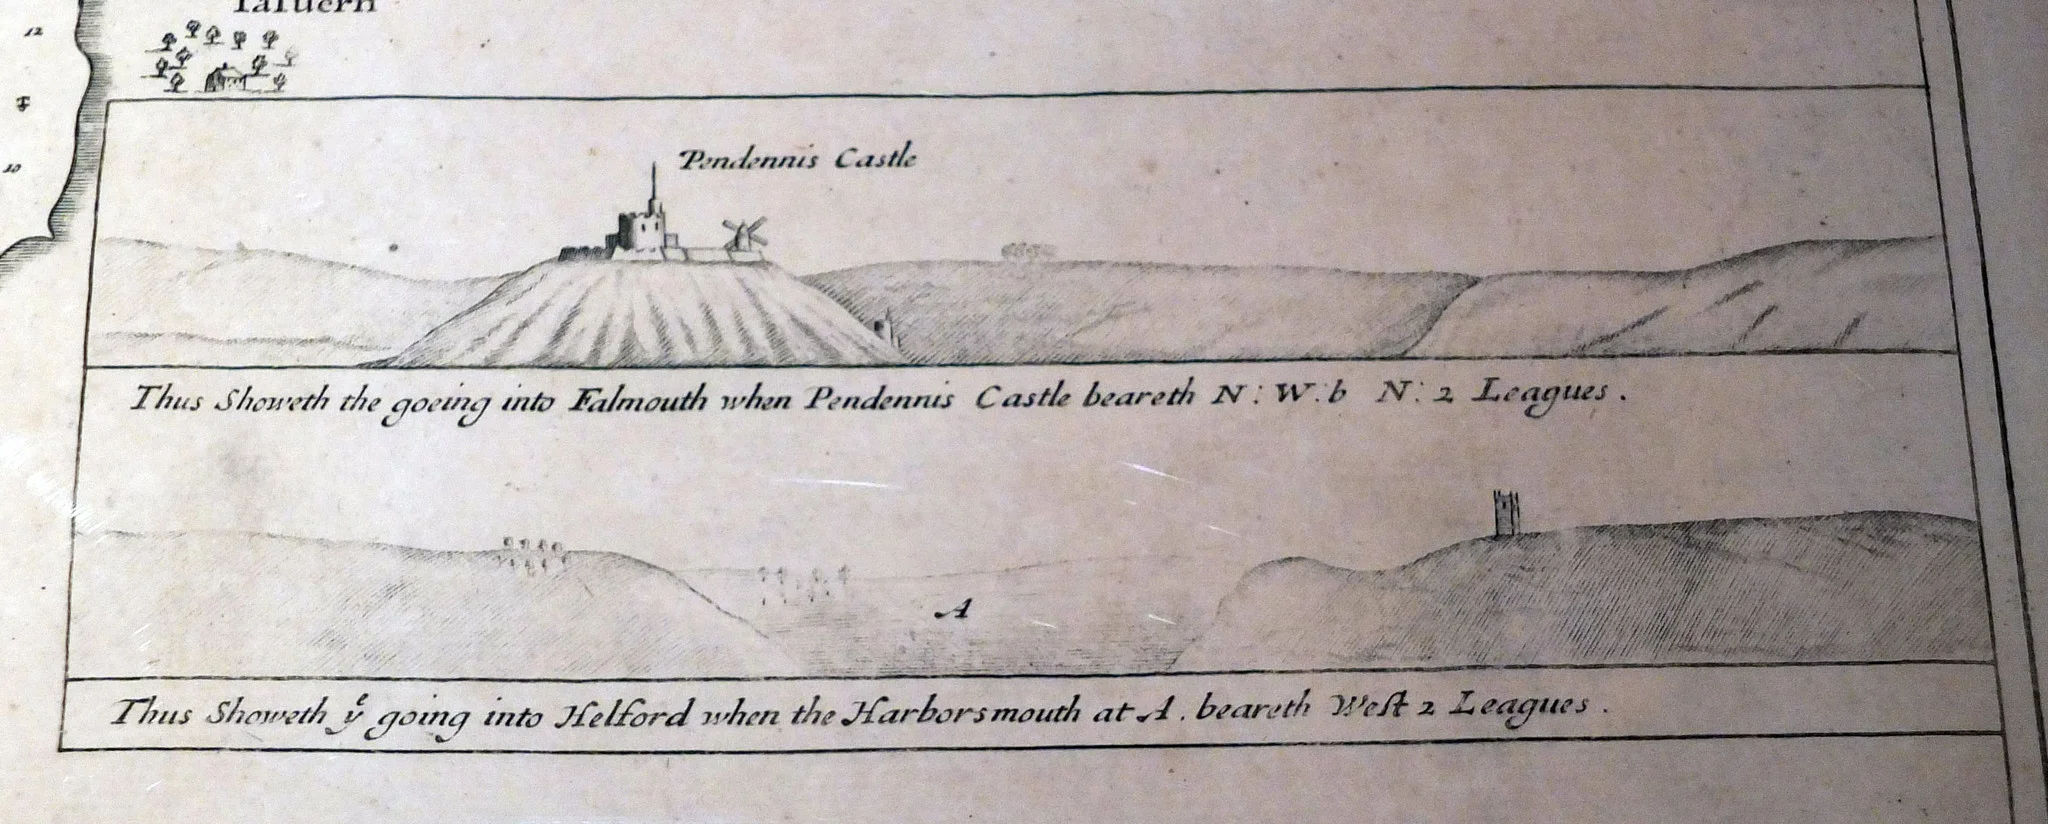 Tafuern
12
10
Pendennis Castle
Thus Showeth the goeing into Falmouth when Pendennis Castle beareth N: W: b N: 2 Leagues.
A
Thus Showeth yᵉ going into Helford when the Harborsmouth at A. beareth Weſt 2 Leagues.